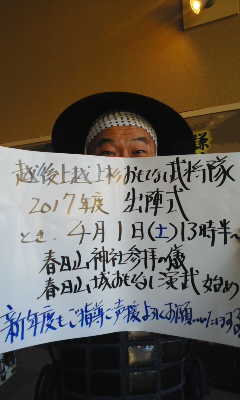 越後上越上杉おもてなし武将隊
2017年度 出陣式
とき 4月1日(土)13時半~
春日山神社参拝の儀
春日山城おもてなし演武始め
新年度もご指導ご声援よろしくお願い